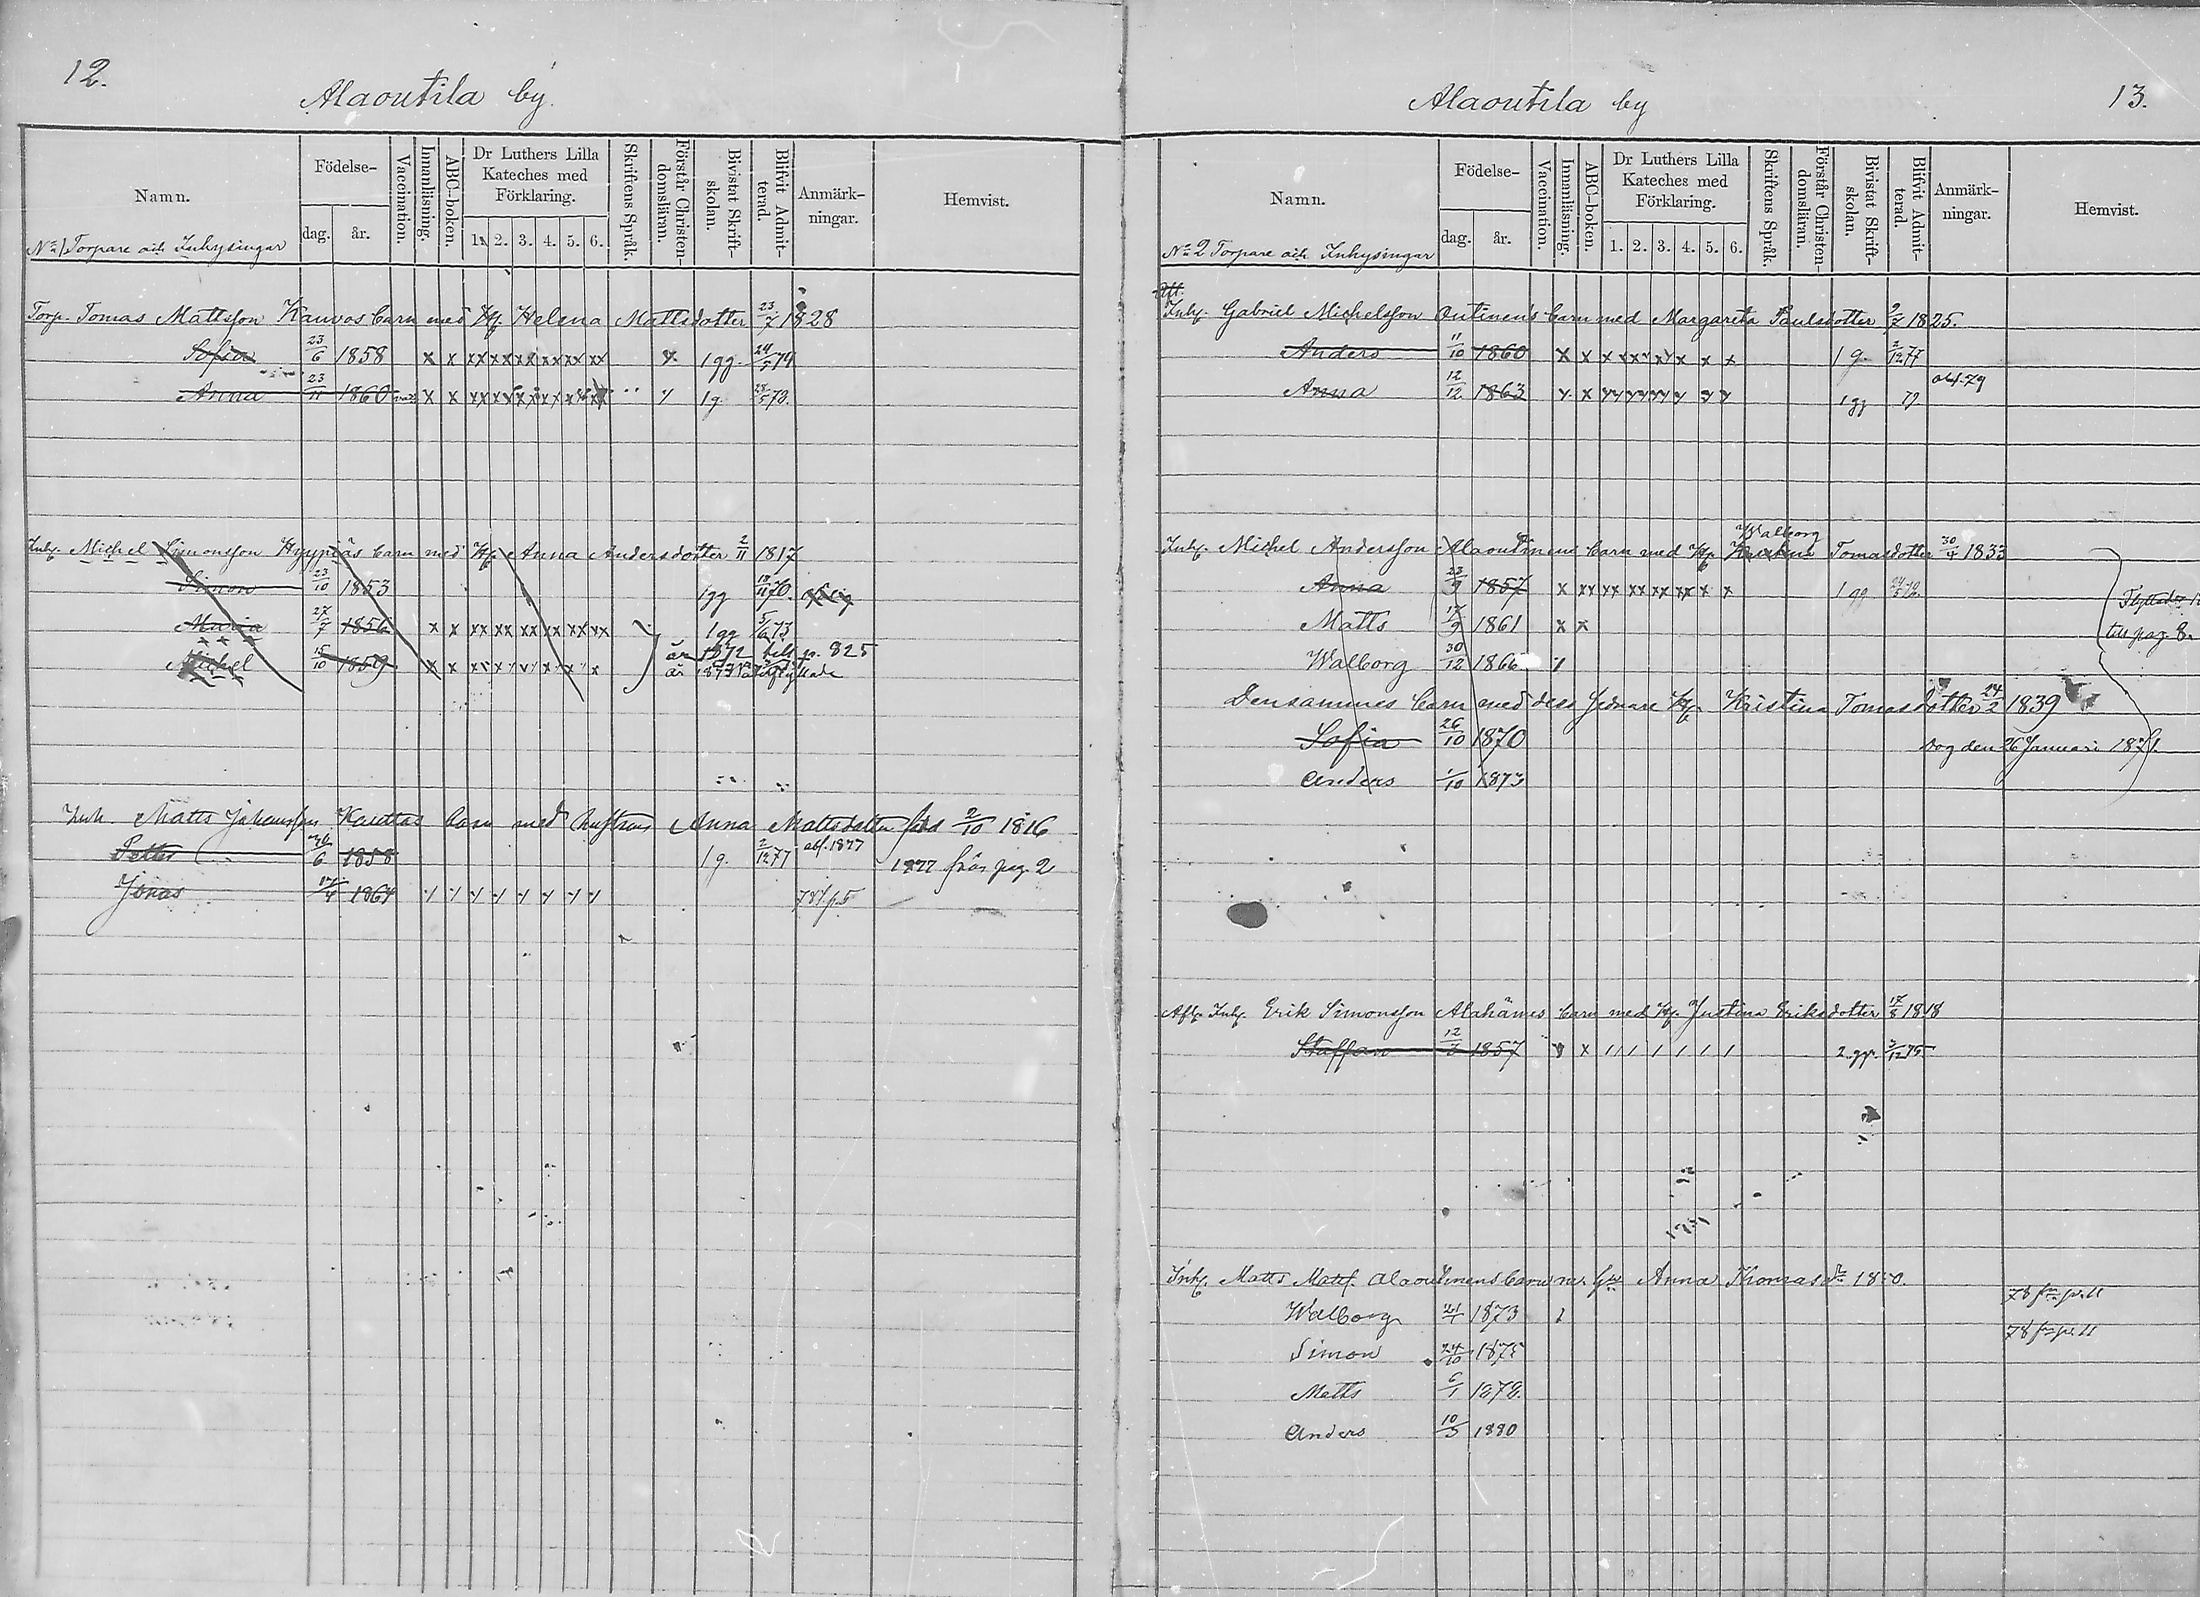 12.
Alaoutila by.
Namn.
Födelse-
dag.
år.
Vaccination.
Innanläsning.
ABC-boken.
Dr Luthers Lilla Kateches med Förklaring.
1. 2. 3. 4. 5. 6.
Skriftens Språk.
Förstår Christendomsläran.
Bivistat Skriftskolan.
Blifvit Admitterad.
Anmärkningar.
Hemvist.
No 1 Torpare och Inhysingar
Torp. Tomas Mattsson Kauvos barn med H. Helena Mattsdotter 23/7 1828
Sofia 23/6 1858 x x xx xx xx xx xx xx x 1 gg 24/5 74
Anna 23/11 1860 x x 1 g 78.
Inh. Michel Simonsson Hyypiäs barn med H. Anna Andersdotter 2/11 1817
Simon 23/10 1853 1 gg 70.
Maria 27/7 1856 x x xx xx xx xx xx xx 1 gg 5/6 73
Michel 15/10 1859 x x år 1872 p. 825
år 1873
Inh. Matts Johansson barn med hustrun Anna Mattsdotter född 2/10 1816
Petter 6 1858 1 g. 2/12 77 abs. 1877 1877 från pag. 2
Jonas 1864 78/p.5
13.
Alaoutila by
Namn.
Födelse-
dag.
år.
Vaccination.
Innanläsning.
ABC-boken.
Dr Luthers Lilla Kateches med Förklaring.
1. 2. 3. 4. 5. 6.
Skriftens Språk.
Förstår Christendomsläran.
Bivistat Skriftskolan.
Blifvit Admitterad.
Anmärkningar.
Hemvist.
No 2 Torpare och Inhysingar
Afl.
Inh. Gabriel Michelsson Outinens barn med Margareta Paulsdotter 9/7 1825.
Anders 11/10 1860 x x 1 g. 2/12 77
Anna 12/12 1863 1 gg 79 abs. 79
Walborg
Inh. Michel Andersson Alaoutinens barn med H. Kristina Tomasdotter 30/4 1833
Anna 23/9 1857 x xx xx xx xx xx x x 1 gg
Matts 17/9 1861 x x
Walborg 30/12 1866
till pag. 8.
Densammes barn med dess sednare H. Kristina Tomasdotter 24/2 1839
Sofia 26/10 1870 dog den 26 Januari 1871
Anders 1/10 1873
Afl. Inh. Erik Simonsson Alahänes barn med H. Justina Eriksdotter 17/8 1818
Staffan 12/3 1857 x 2 ggr. 3/12 75
Inh. Matts Matts. Alaoutinens barn m. Anna Thomasdr 1850.
78 frn p. 11
Walborg 21/4 1873
78 frn p. 11
Simon 24/10 1875
Matts 6/1 1878.
Anders 10/3 1880